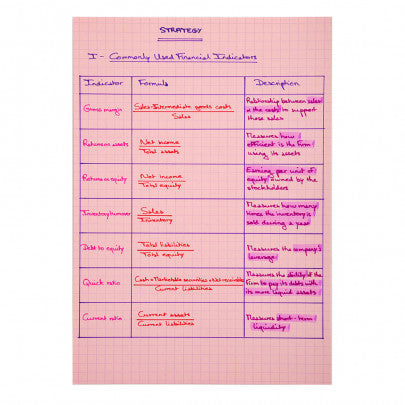 STRATEGY
I - Commonly Used Financial Indicators
Indicator Formula Description
Gross margin Sales-Intermediate goods costs / Sales Relationship between sales
& the costs to support
those sales
Return on assets Net income / Total assets Measures how
efficient is the firm
using its assets
Return on equity Net income / Total equity Earning per unit of
equity owned by the
stockholders
Inventory turnover Sales / Inventory Measures how many
times the inventory is
sold during a year
Debt to equity Total liabilities / Total equity Measures the company's
leverage
Quick ratio Cash + Marketable securities + receivable / Current liabilities Measures the ability of the
firm to pay its debts with
its more liquid assets
Current ratio Current assets / Current liabilities Measures short-term
liquidity